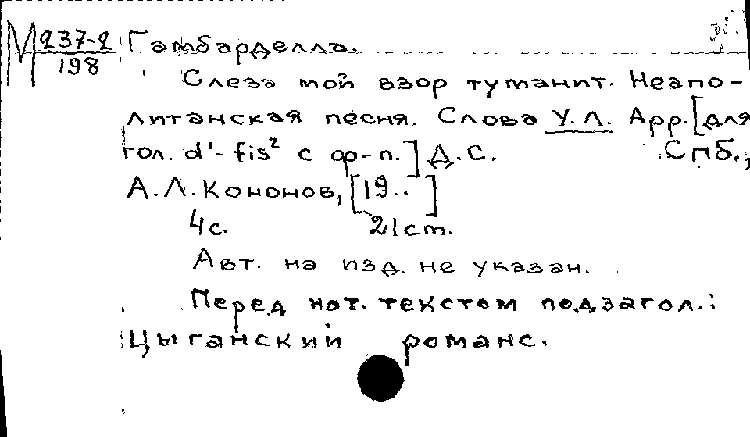 М 237-2 Гамбарделла.
198
Слеза мой взор туманит. Неапо-
литанская песня. Слова У.Л. Арр. [для
гол. d'-fis² с фр-п.] Д.С. СПб.,
А.Л. Кононов, [19..]
4с. 21ст.
Авт. на изд. не указан.
Перед нот. текстом подзагол.:
Цыганский романс.